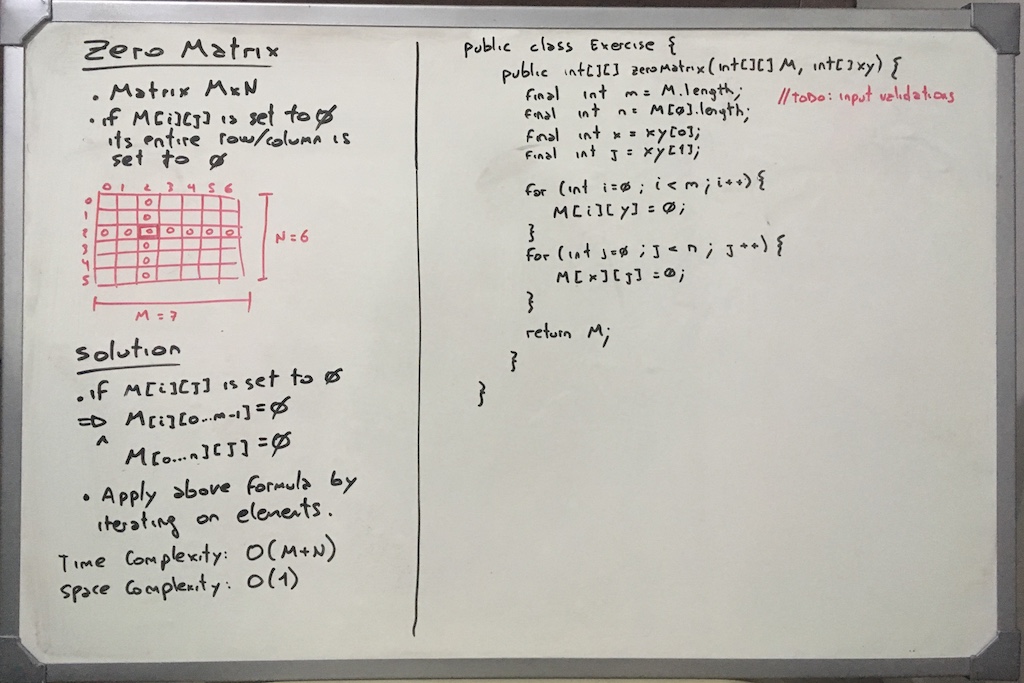 Zero Matrix
. Matrix MxN
. if M[i][J] is set to Ø
its entire row/column is
set to Ø
0 1 2 3 4 5 6
0 0
1 0
2 0 0 0 0 0 0 0
3 0
4 0
5 0
N = 6
M = 7
Solution
. if M[i][J] is set to Ø
⇒ M[i][0...m-1] = Ø
^
M[0...n][J] = Ø
• Apply above formula by
iterating on elements.
Time Complexity: O(M+N)
Space Complexity: O(1)
public class Exercise {
public int[][] zeroMatrix(int[][] M, int[] xy) {
final int m = M.length;
//TODO: input validations
final int n = M[Ø].length;
final int x = xy[0];
final int J = xy[1];
for (int i=Ø; i < m; i++) {
M[i][y] = Ø;
}
for (int J=Ø; J < n; J++) {
M[x][J] = Ø;
}
return M;
}
}